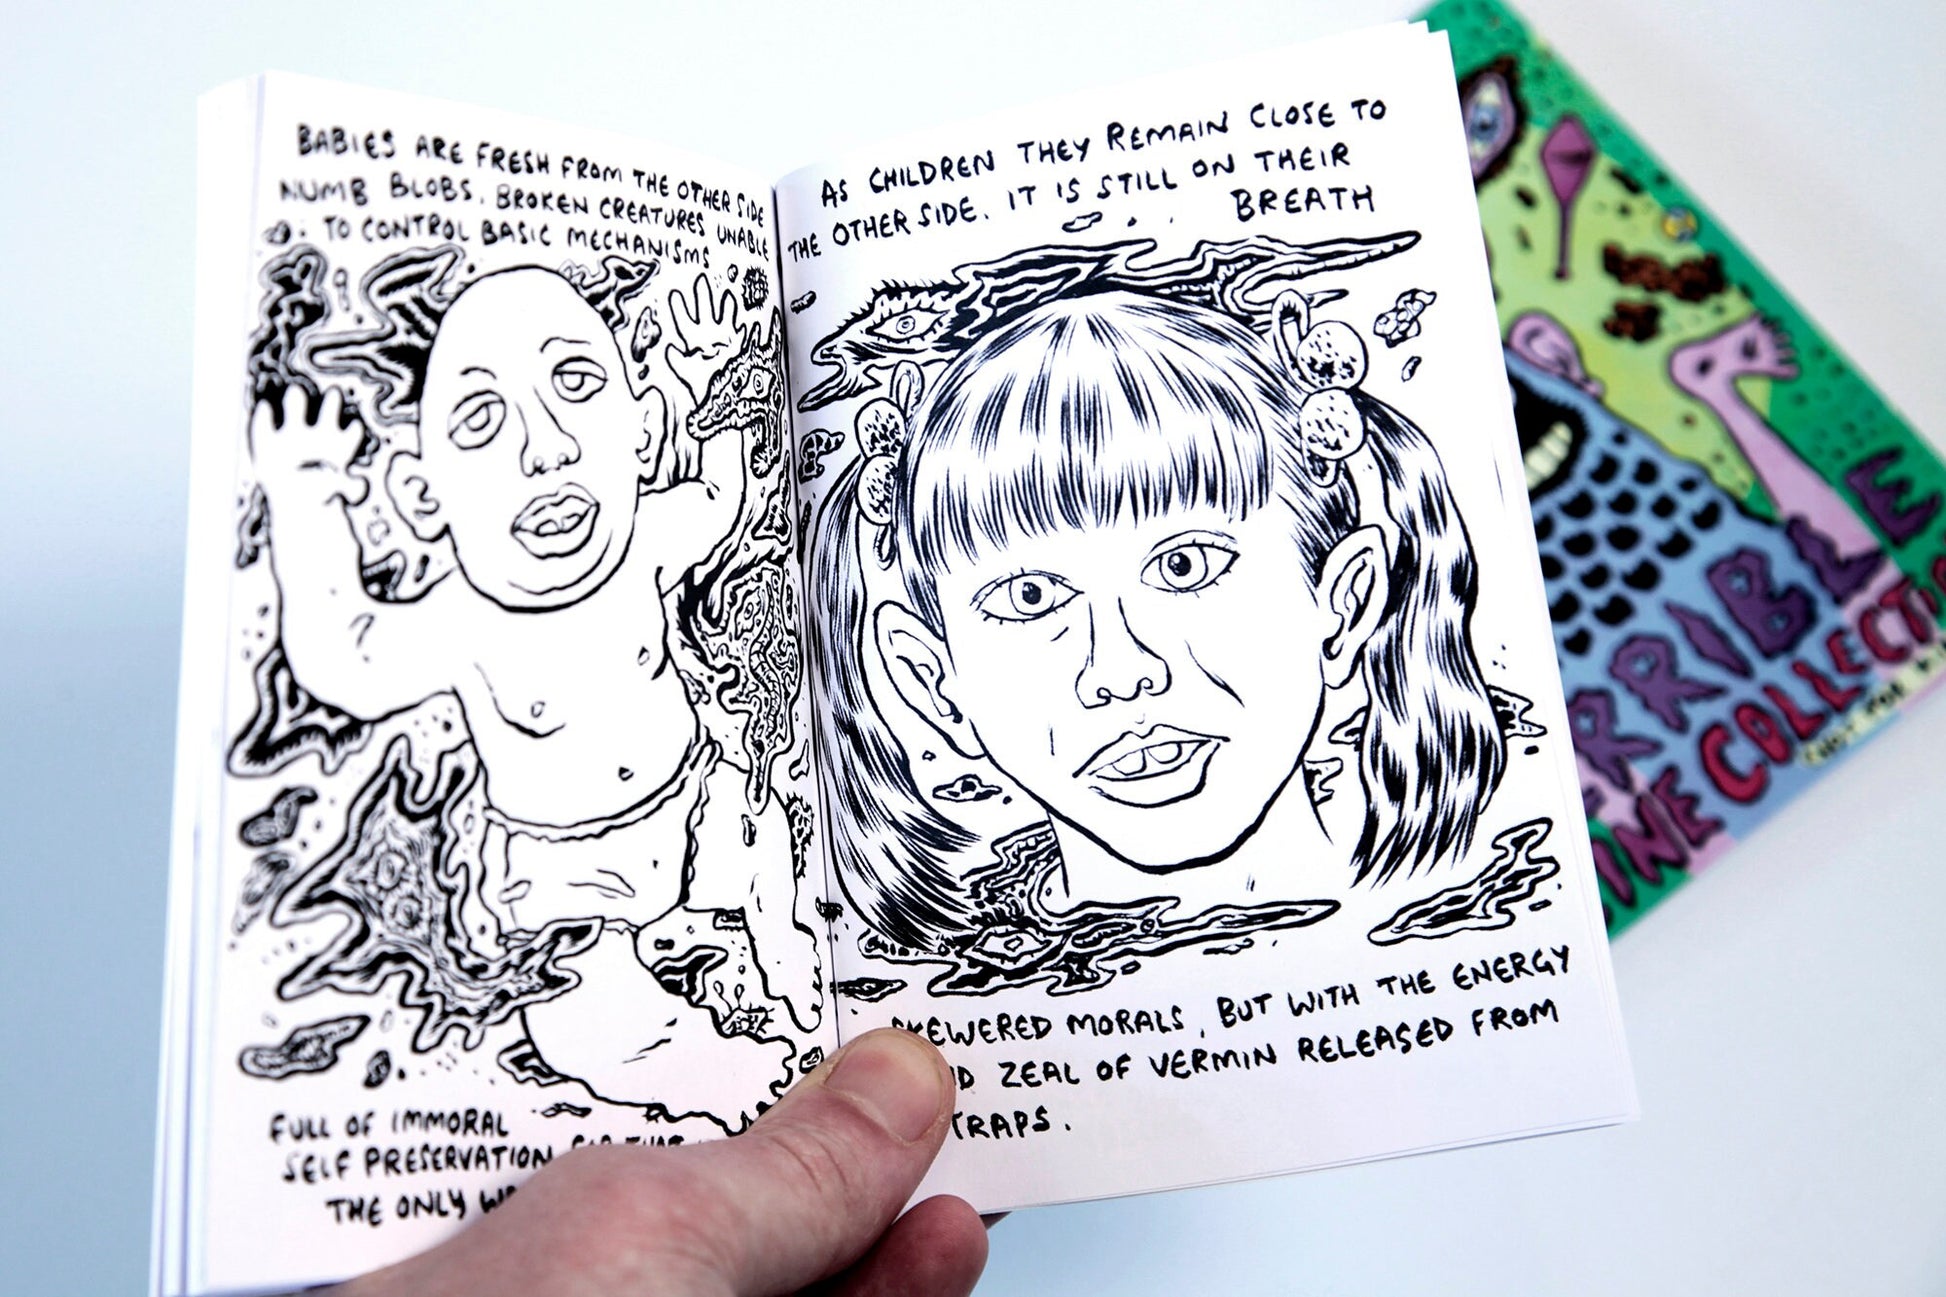 BABIES ARE FRESH FROM THE OTHER SIDE
NUMB BLOBS. BROKEN CREATURES UNABLE
TO CONTROL BASIC MECHANISMS
FULL OF IMMORAL
SELF PRESERVATION
THE ONLY
AS CHILDREN THEY REMAIN CLOSE TO
THE OTHER SIDE. IT IS STILL ON THEIR
BREATH
SKEWERED MORALS, BUT WITH THE ENERGY
ZEAL OF VERMIN RELEASED FROM
TRAPS.